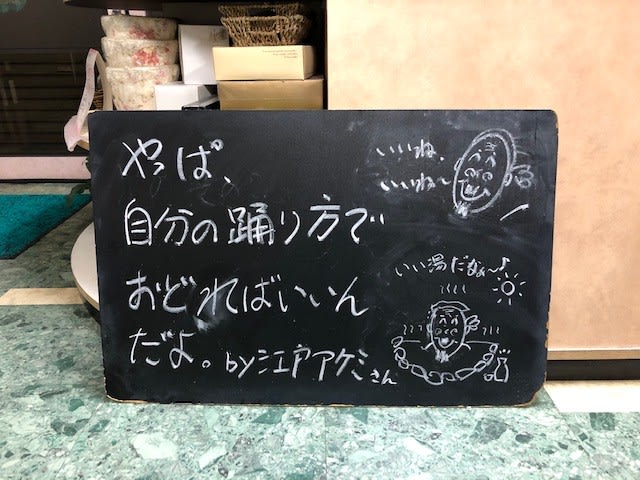 やっぱ、
自分の踊り方で
おどればいいん
だよ。by江戸アケミさん
いいね、
いいね〜
いい湯だなぁ〜♪